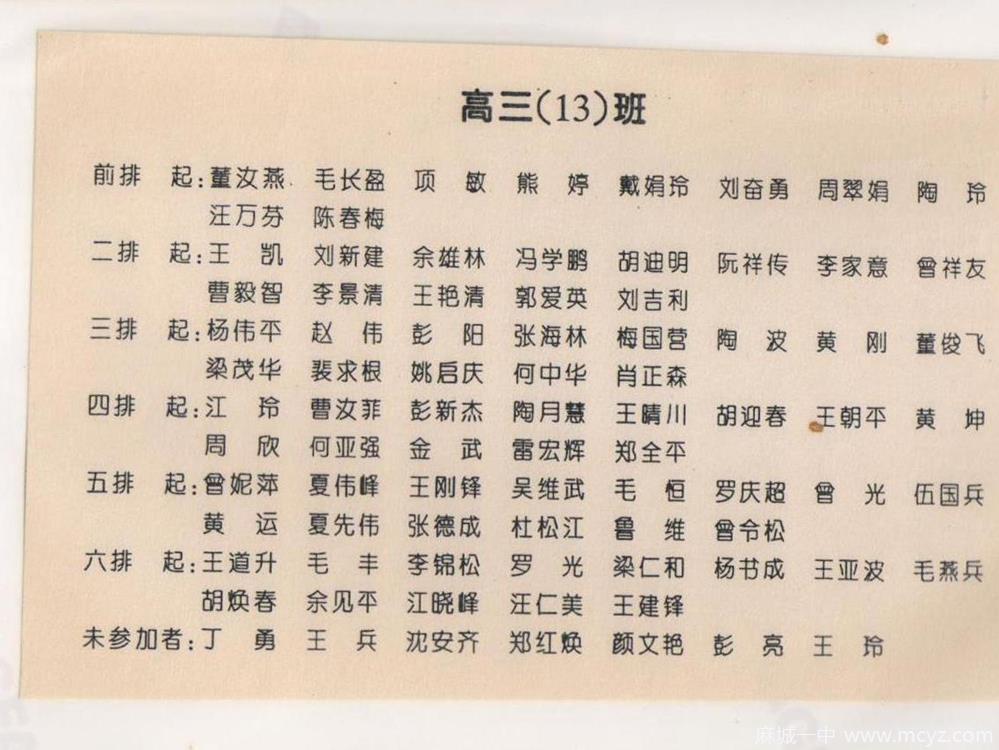 高三(13)班
前排 起:董汝燕 毛长盈 项 敏 熊 婷 戴娟玲 刘奋勇 周翠娟 陶 玲
汪万芬 陈春梅
二排 起:王 凯 刘新建 余雄林 冯学鹏 胡迪明 阮祥传 李家意 曾祥友
曹毅智 李景清 王艳清 郭爱英 刘吉利
三排 起:杨伟平 赵 伟 彭 阳 张海林 梅国营 陶 波 黄 刚 董俊飞
梁茂华 裴求根 姚启庆 何中华 肖正森
四排 起:江 玲 曹汝菲 彭新杰 陶月慧 王晴川 胡迎春 王朝平 黄 坤
周 欣 何亚强 金 武 雷宏辉 郑全平
五排 起:曾妮萍 夏伟峰 王刚锋 吴维武 毛 恒 罗庆超 曾 光 伍国兵
黄 运 夏先伟 张德成 杜松江 鲁 维 曾令松
六排 起:王道升 毛 丰 李锦松 罗 光 梁仁和 杨书成 王亚波 毛燕兵
胡焕春 余见平 江晓峰 汪仁美 王建锋
未参加者:丁 勇 王 兵 沈安齐 郑红焕 颜文艳 彭 亮 王 玲
麻城一中 www.mcyz.com